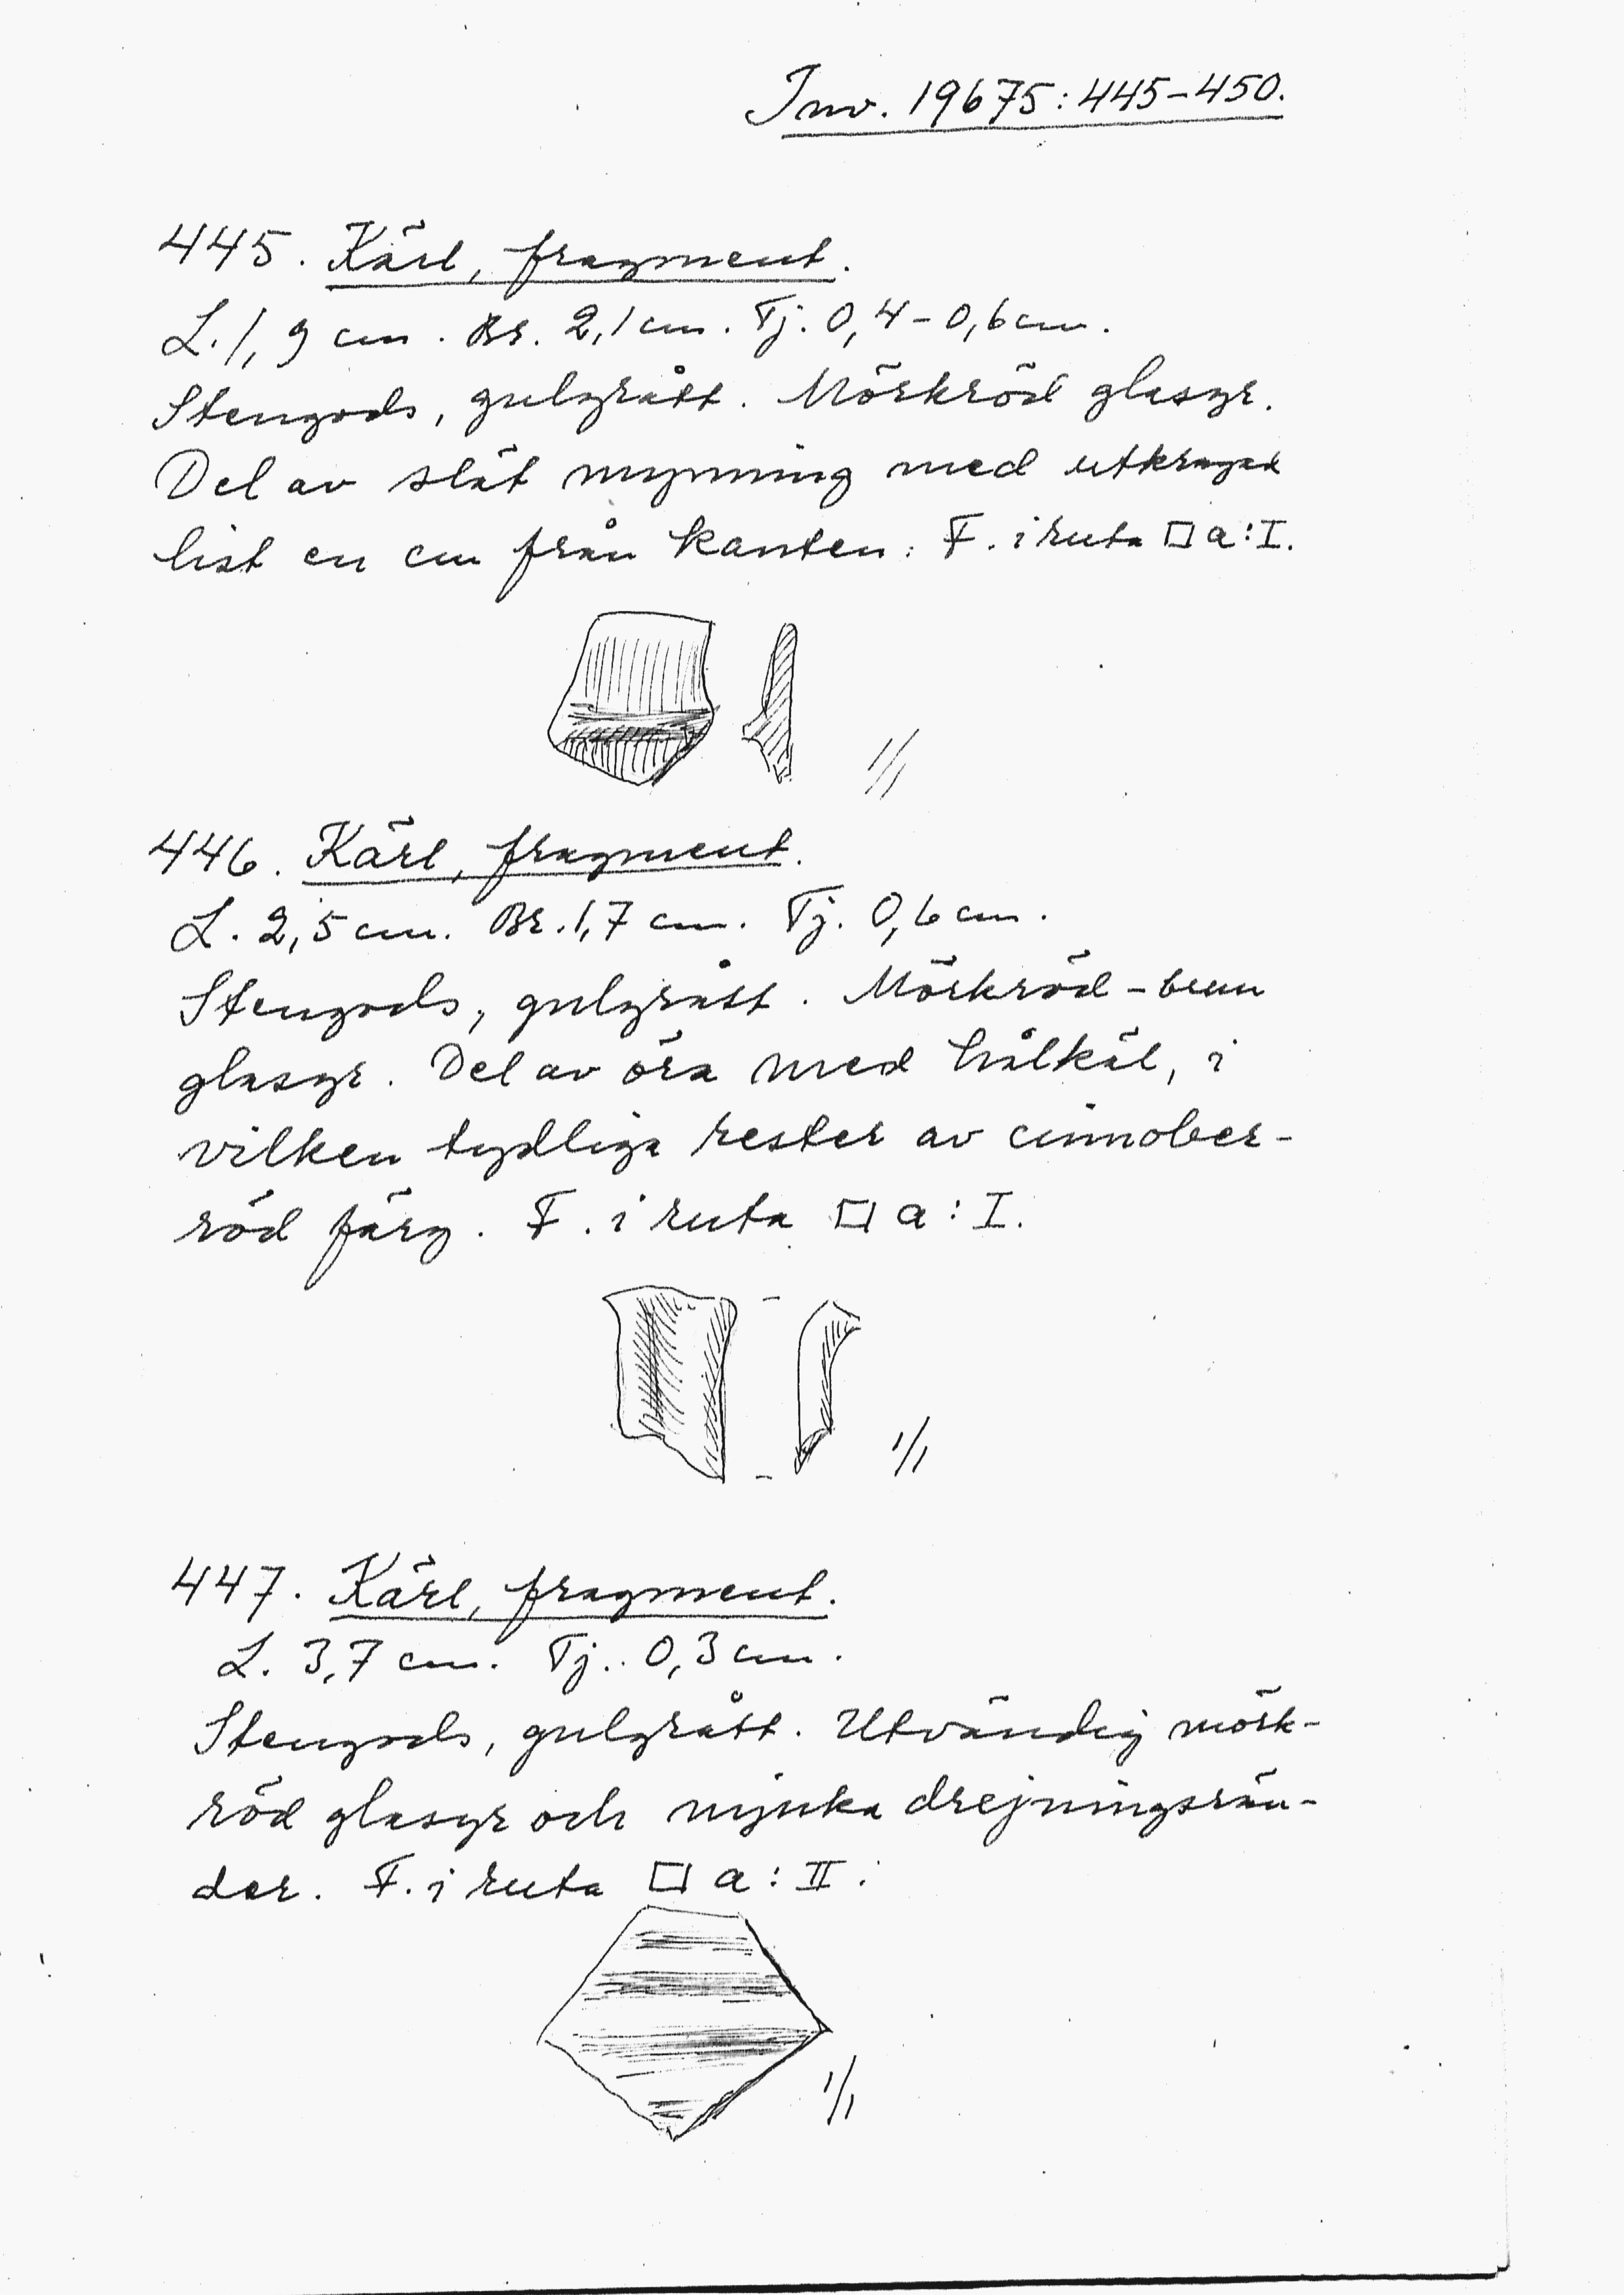 Inv. 19675:445-450.
445. Kärl, fragment.
L. 1,9 cm. Br. 2,1 cm. Tj. 0,4-0,6 cm.
Stengods, gulgrått. Mörkröd glasyr.
Del av slät mynning med utkragad
list en cm från kanten. F. i ruta □ a:I.
1/1
446. Kärl, fragment.
L. 2,5 cm. Br. 1,7 cm. Tj. 0,6 cm.
Stengods, gulgrått. Mörkröd-brun
glasyr. Del av öra med hålkäl, i
vilken tydliga rester av cinnober-
röd färg. F. i ruta □ a:I.
1/1
447. Kärl, fragment.
L. 3,7 cm. Tj. 0,3 cm.
Stengods, gulgrått. Utvändig mörk-
röd glasyr och mjuka drejningsrän-
der. F. i ruta □ a:II.
1/1